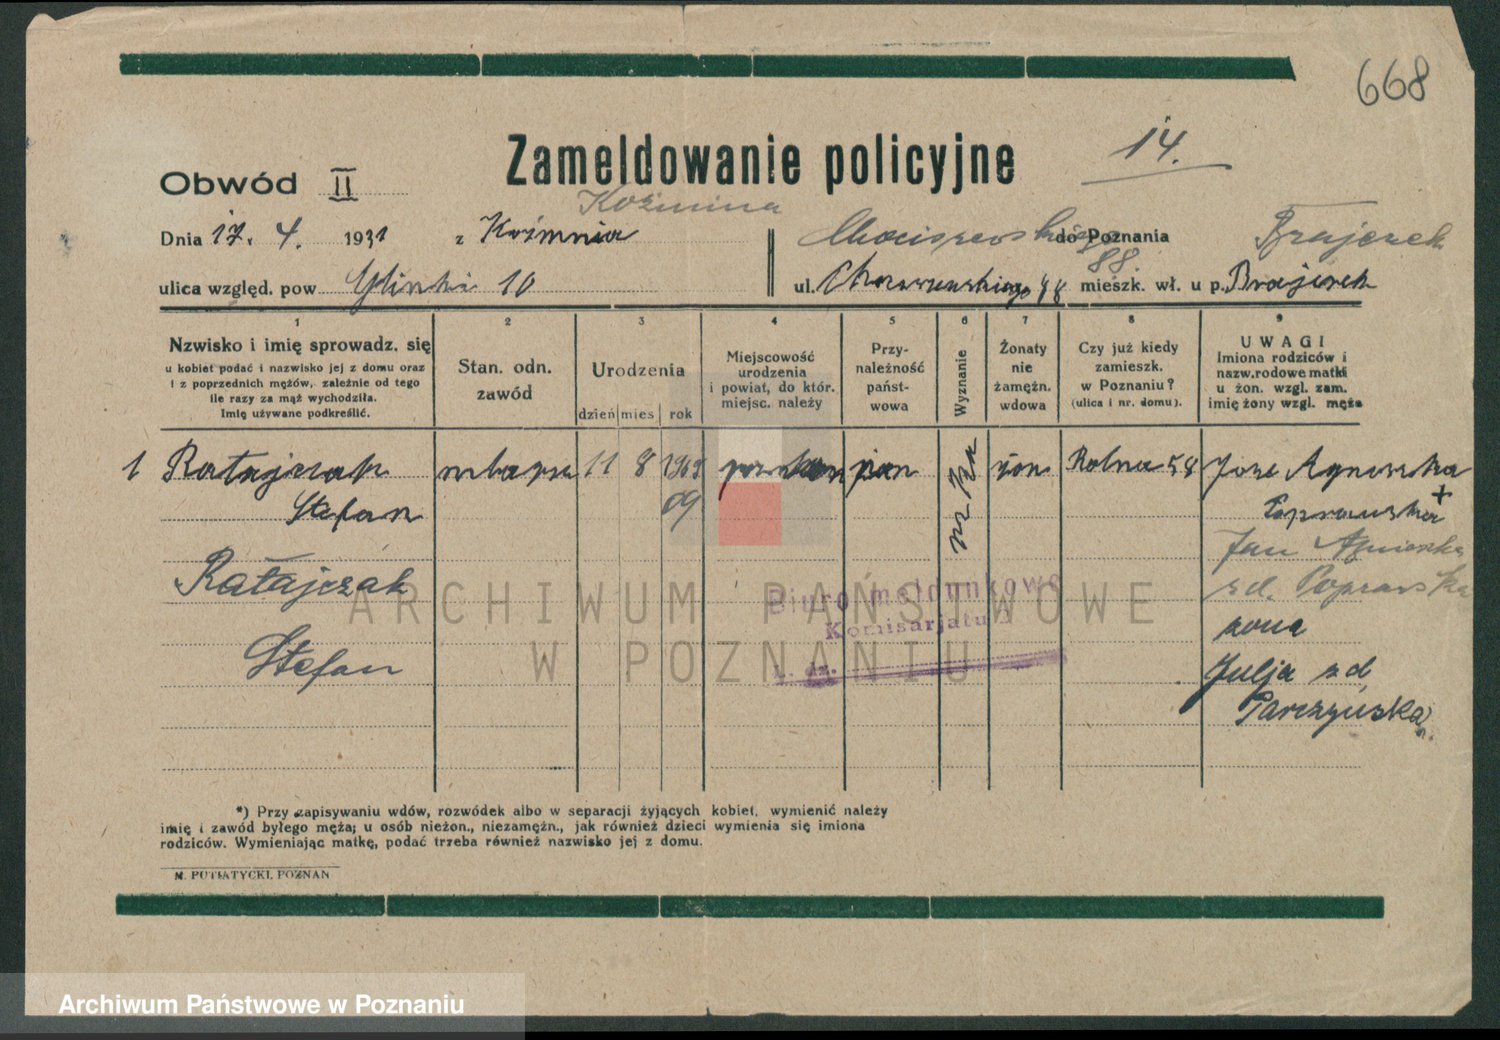 668
Zameldowanie policyjne
14.
Obwód II
Koźmina
Dnia 17. 4. 1931 z Koźmnia
do Poznania
Brajczek
88.
ulica względ. pow. Glinki 10
ul. 88 mieszk. wł. u p. Brajczek
1 2 3 4 5 6 7 8 9
Nzwisko i imię sprowadz. się
u kobiet podać i nazwisko jej z domu oraz
i z poprzednich mężów, zależnie od tego
ile razy za mąż wychodziła.
Imię używane podkreślić.
Stan. odn.
zawód
Urodzenia
dzień mies rok
Miejscowość
urodzenia
i powiat, do któr.
miejsc. należy
Przy-
należność
państ-
wowa
Wyznanie
Żonaty
nie
żamężn.
wdowa
Czy już kiedy
zamieszk.
w Poznaniu?
(ulica i nr. domu).
UWAGI
Imiona rodziców i
nazw.rodowe matki
u żon. wzgl. zam.
imię żony wzgl. męża
1 Ratajczak 11 8 1909 żon Rolna 58
Stefan
09
Poprawska +
Jan Agnieszka
zd. Poprawska
Ratajczak
żona
Stefan
Julja zd
Parczyńska
Biuro meldunkowe
Komisarjatu
L. dz.
ARCHIWUM PAŃSTWOWE
W POZNANIU
*) Przy zapisywaniu wdów, rozwódek albo w separacji żyjących kobiet, wymienić należy
imię i zawód byłego męża; u osób nieżon., niezamężn., jak również dzieci wymienia się imiona
rodziców. Wymieniając matkę, podać trzeba również nazwisko jej z domu.
M. PUTIATYCKI, POZNAN
Archiwum Państwowe w Poznaniu